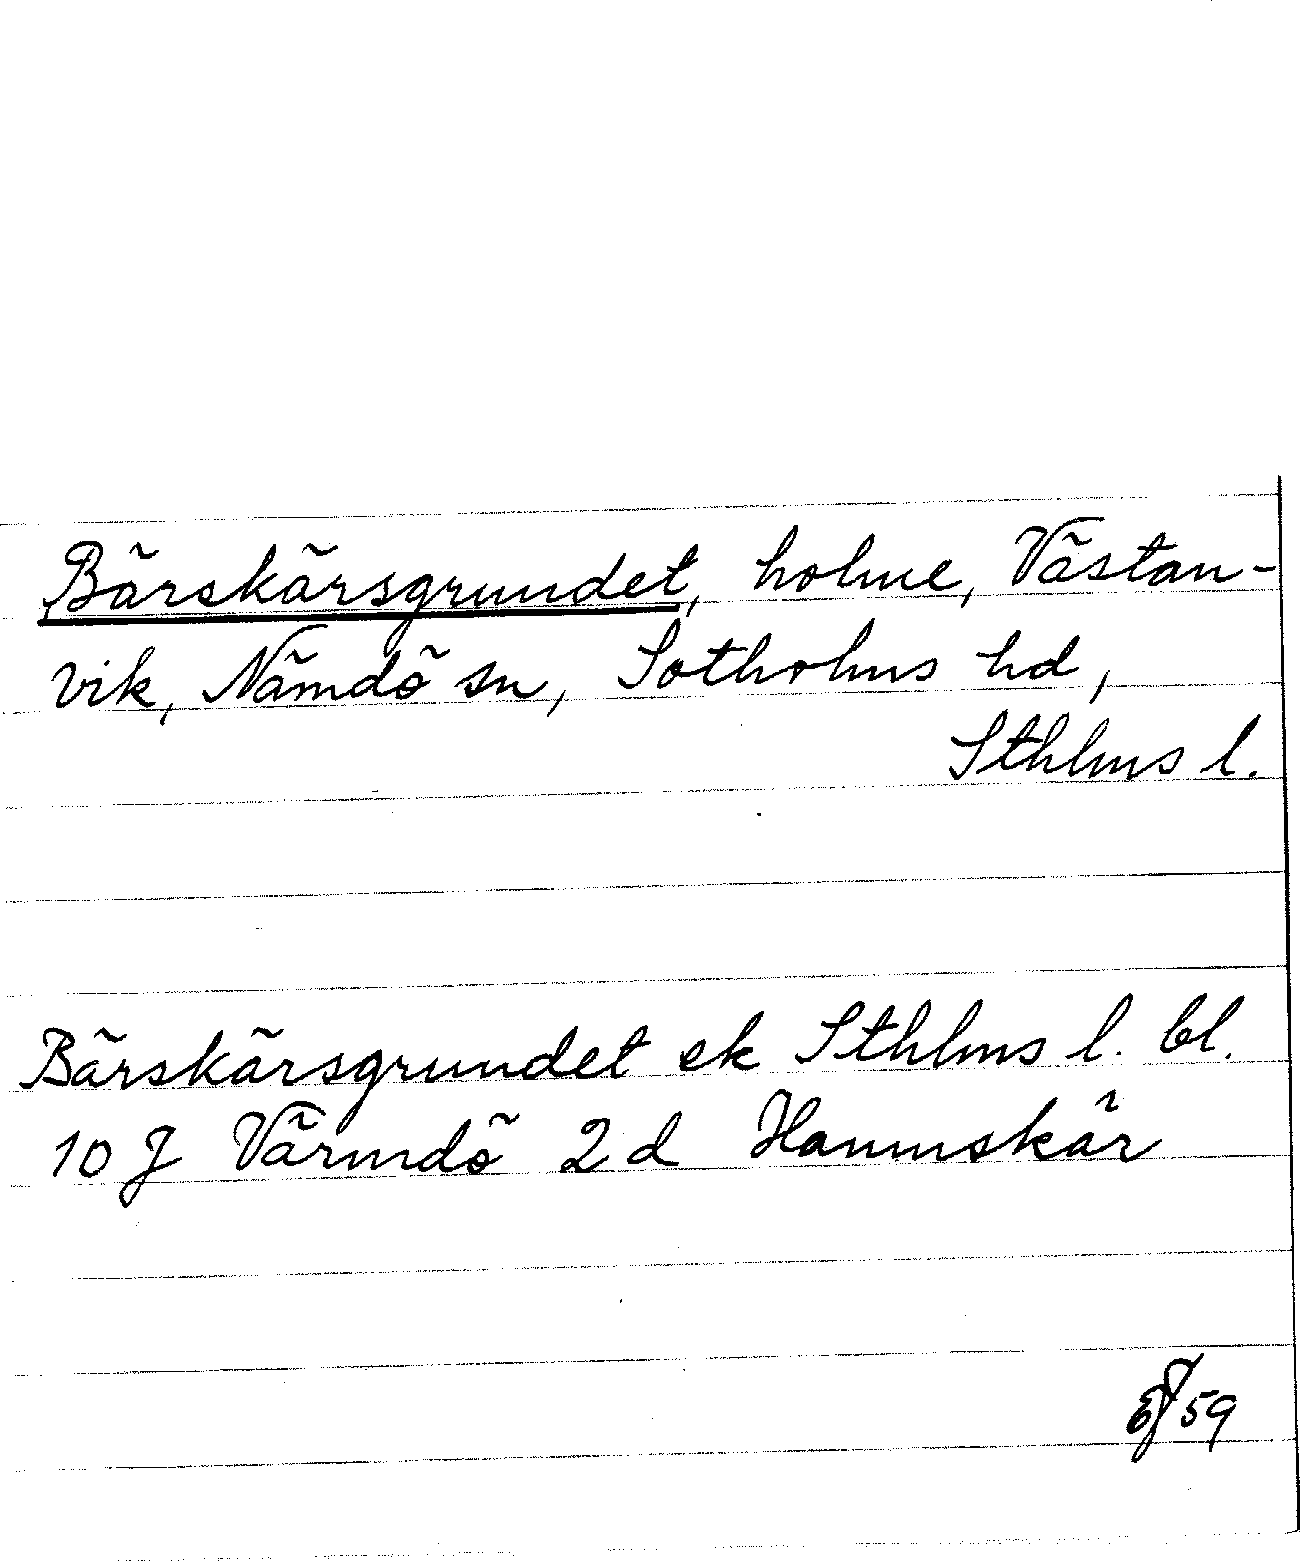 Bärskärsgrundet, holme, Västan-
vik, Nämdö sn, Sotholms hd,
Sthlms l.
Bärskärsgrundet ek Sthlms l. bl.
10 J Värmdö 2 d Hamnskär
59